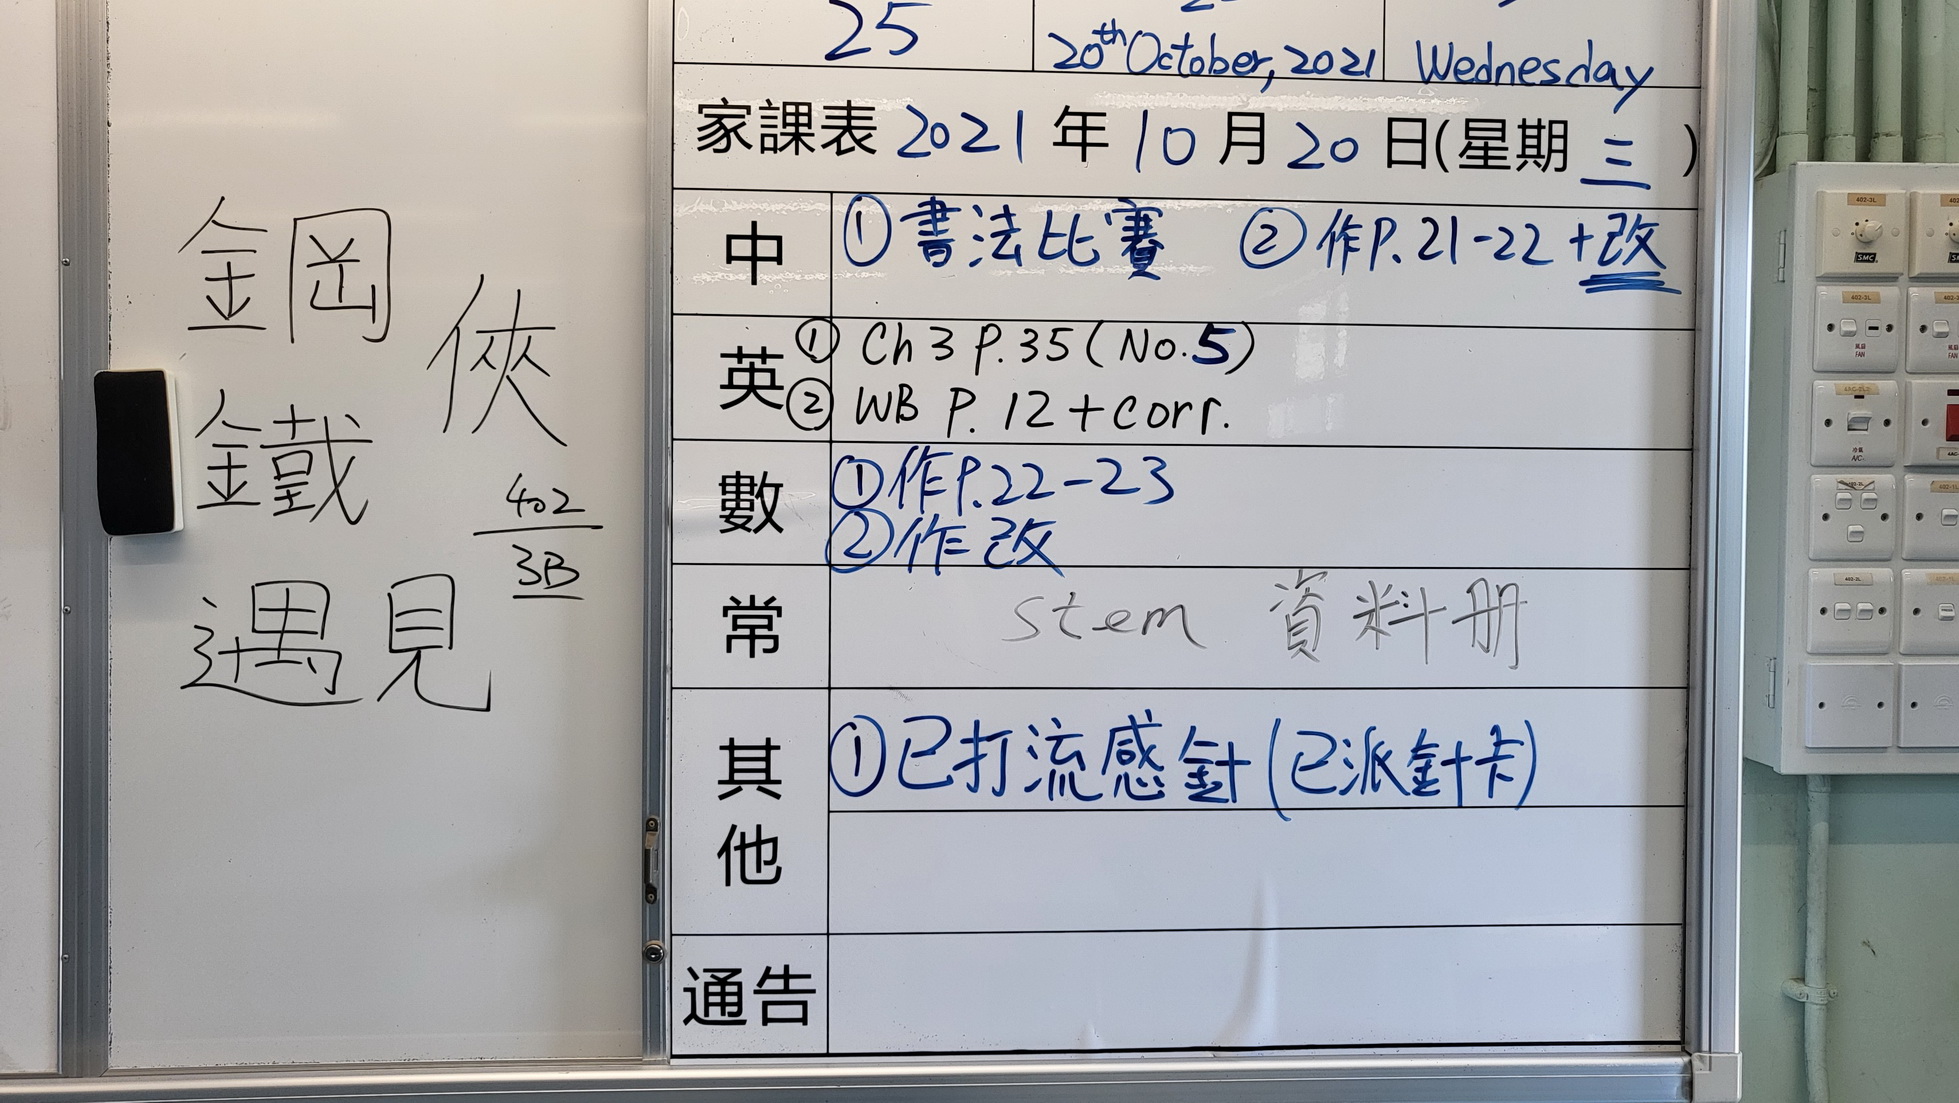 鋼
俠
鐵
402
3B
遇見
25
20th October, 2021
Wednesday
家課表 2021 年 10 月 20 日(星期 三 )
中
① 書法比賽 ② 作P.21-22 +改
英
① Ch 3 P.35 (No.5)
② WB P. 12 + corr.
數
① 作P.22-23
② 作改
常
stem 資料册
其他
① 已打流感針 (已派針卡)
通告
402-3L
SMC
402-3L
FAN
A/C